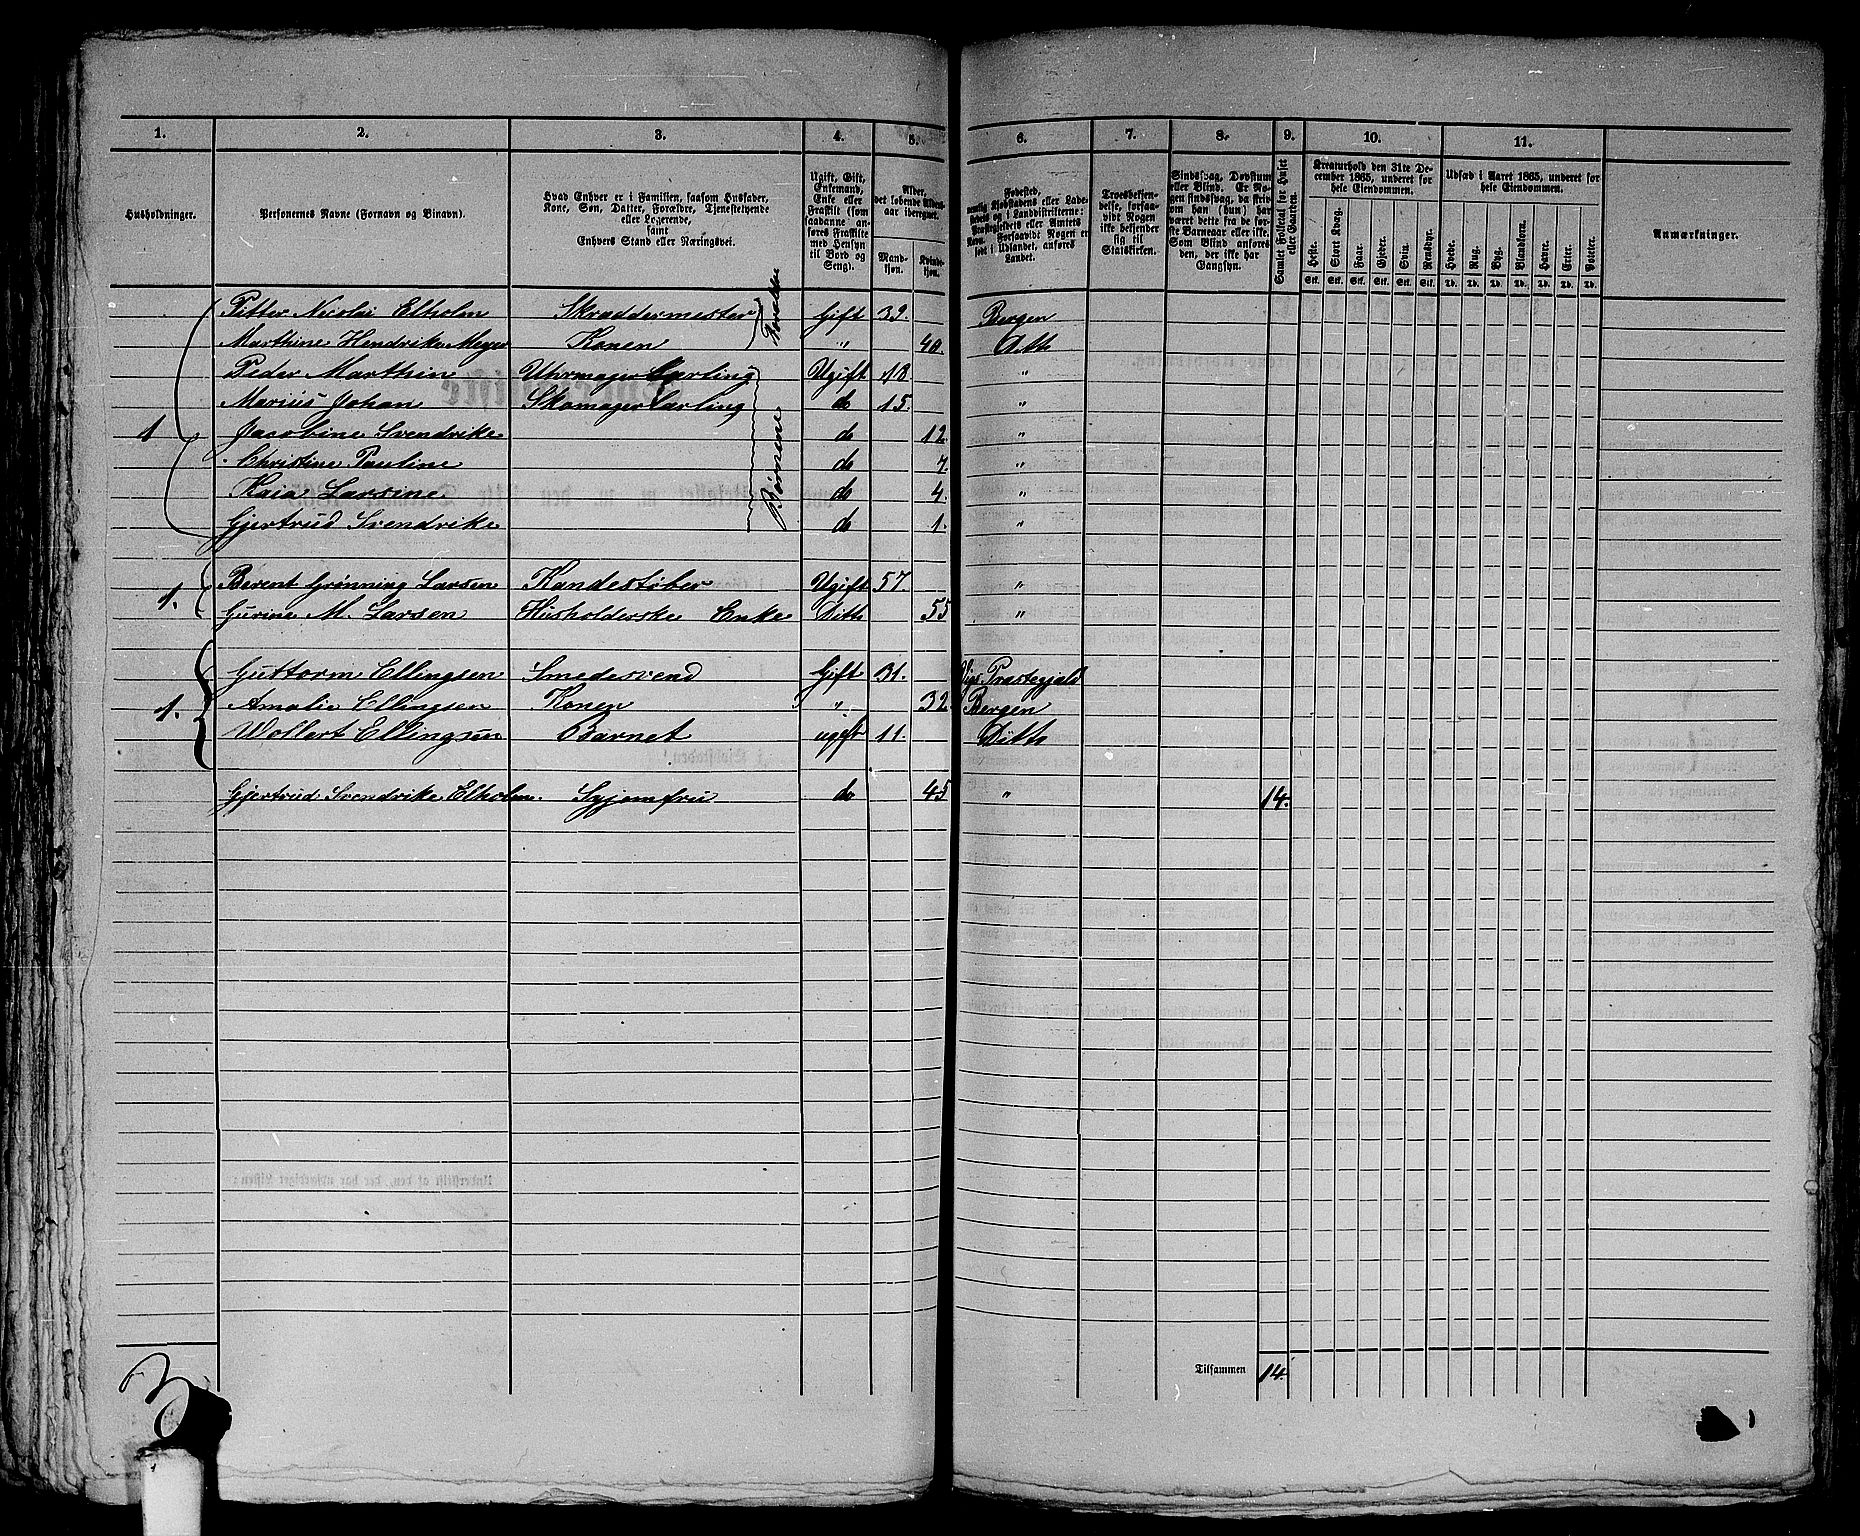 1. 2. 3. 4. 5. 6. 7. 8. 9. 10. 11.
Husholdninger.
Personernes Navne (Fornavn og Binavn).
Hvad Enhver er i Familien, saasom Husfader,
Kone, Søn, Datter, Forældre, Tjenestetyende
eller Logerende,
samt
Enhvers Stand eller Næringsvei.
Ugift, Gift,
Enkemand,
Enke eller
Fraskilt (som
saadanne an-
føres Fraskilte
med Hensyn
til Bord og
Seng).
Alder,
det løbende Alders-
aar iberegnet.
Mand-
kjøn.
Kvinde-
kjøn.
Fødested,
nemlig Kjøbstadens eller Lade-
stedets og i Landdistrikterne:
Præstegjeldets eller Amtets
Navn. Forsaavidt Nogen er
født i Udlandet, anføres
Landet.
Troesbekjen-
delse, forsaa-
vidt Nogen
ikke bekjender
sig til
Statskirken.
Sindssvag, Døvstum
eller Blind. Er No-
gen sindssvag, da skriv
om han (hun) har
været dette fra de før-
ste Barneaar eller ikke.
Som Blind anføres
den, der ikke har
Gangsyn.
Samlet Folketal for Huset
eller Gaarden.
Kreaturhold den 31te De-
cember 1865, underet for
hele Eiendommen.
Heste. Stort Kvæg. Faar. Gjeder. Svin. Rensdyr.
Stk. Stk. Stk. Stk. Stk. Stk.
Udsæd i Aaret 1865, underet for
hele Eiendommen.
Hvede. Rug. Byg. Blandkorn. Havre. Erter. Poteter.
Td. Td. Td. Td. Td. Td. Td.
Anmærkninger.
Petter Nicolai Elholm Skræddermester Gift 39. Bergen
Marthine Hendrike Meyer Konen " 40. Ditto
Peder Marthin Uhrmager Lærling Ugift 18 "
Marius Johan Skomager Lærling do 15. "
1 Jacobine Svendrike do 12 "
Christine Pauline do 7 "
Kaia Larsine do 4. "
Gjertrud Svendrike do 1. "
Forældre
Børnene
1. Berent Grønning Larsen Kandestøber Ugift 57. "
Gurine M. Larsen Husholderske Enke Ditto 55 "
Guttorm Ellingsen Smedesvend Gift 31. Præstegjæld
1. Amalie Ellingsen Konen " 32. Bergen
Wollert Ellingsen Barnet ugift 11. Ditto
Gjertrud Svendrike Elholm. Syjomfru do 45 " 14.
Underskrift af den, der har udfærdiget Listen:
Tilsammen 14.
3